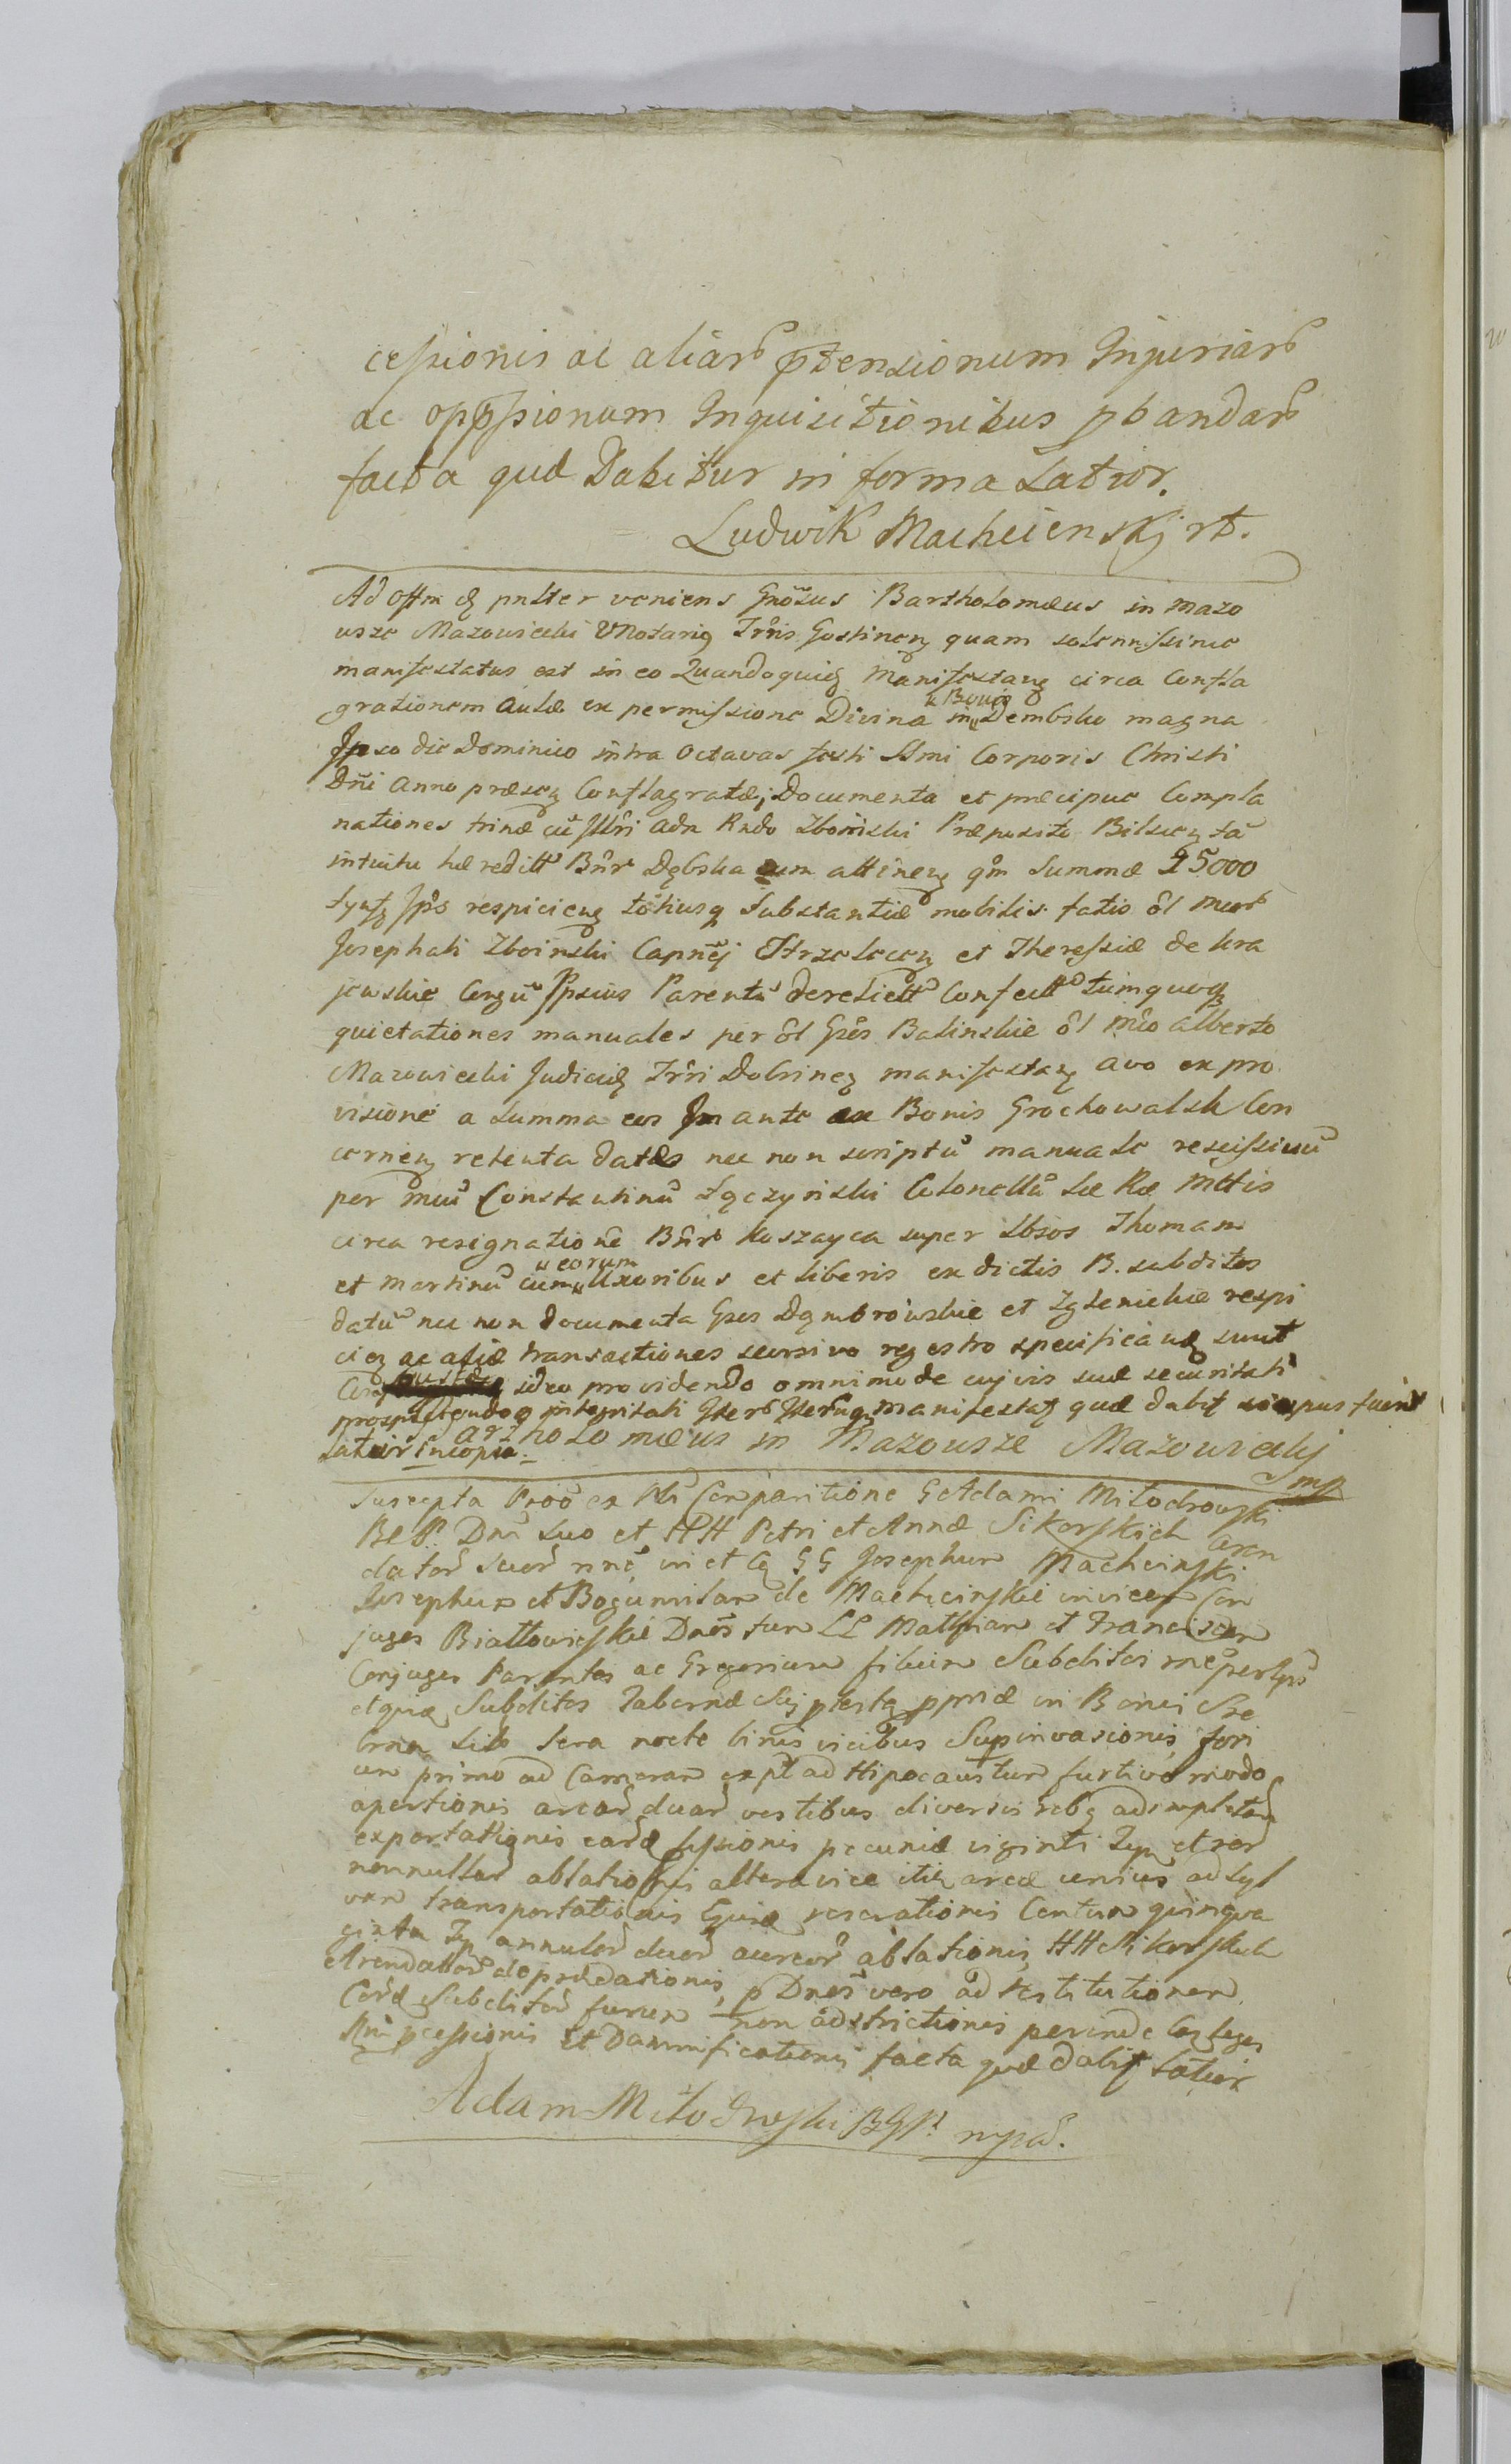 cessionis ac aliar ptensionum Injuriar
ac oppssionum Inquisitionibus pbandar
facta quæ Dabitur in forma Latior.
Ludwik Macheienskj rt.
Ad Offm q pnlter veniens Gnosus Bartholomæus in Mazo
usze Mazowiecki VNotariq Trris Gostinenq quam solennissime
manifestatus est in eo Quandoquiq Manifestanq circa Confla
grationem Aulæ ex permissione Divina in Bonis Dembsko magna
Ipso die Dominico intra Octavas festi SSmi Corporis Christi
Dni Anno præsenq Conflagratæ; Documenta et præcipue Compla
nationes trinæ cu Illri Adm Rndo Zboinski Præposito Bilscenq ta
intuitu hæreditt Bnr Dębska cum attinenq qm Summæ 15000
respicienq totiusq Substantiæ mobilis
Josephati Zboinski Capnej et Theressiæ de Kra
jewskie Conju Ipsius Parentu derelictt Confectt tumquoq
quietationes manuales per ol Gsos Balinskie ol Mco Alberto
Mazowiecki Judiciq Trri Dobrinenq manifestanq avo ex pro
visione a Summa eos ante ex Bonis Grochowalsk Con
cernenq retenta datas nec non scriptu manuale rescissivu
per Mcu Constantinu Łączynski Colonellu Sæ Ræ Mttis
circa resignatione Bnr Koszayca super Lbsos Thomam
et Martinu cum eorum Uxoribus et liberis ex dictis B. subditos
datu nec non documenta Gsos Dąmbrowskie et Zglenickie respi
cienq ac aliæ transactiones seorsivo regestro specificanæ sunt
ideo providendo omnimode cujvis suæ securitati
prospiciendoq integritati Manifestatq quæ dabit
latior in copia
Bartholomæus in Mazowsze Mazowieckj
mp
Suscepta Proō ex Comparitione G Adami Miłodrowski
BGP. Dni suo et HH Petri et Annæ Sikorskich Aren
dator suor nne, in et Cq GG Josephum Machcinski
Josephum et Bogumilam de Machcinskie invicem Con
juges Białłowieskie Dnos tum LL Mathiam et Franciscam
Conjuges Parentes ac Gregorium filium Subditos
Subditos Tabernæ in Bonis Sre
brna sub sera nocte binis vicibus Supinvasionis fori
um primo ad Cameram ad Hipocaustum furtivo modo
apertionis arcar duar vestibus diversis rebq adimpletar
exportationis pecuniæ viginti et rer
nonnullar ablationis altera vice itiq arcæ unius ad Syl
vam transportationis Ejusdæ reserationis Centum quinqua
ginta annulor duor aureor ablationis, HH Sikorskich
Arendator deprædationis, p Dnos vero ad restitutionem
Subditor furum non adstrictionis perinde Con leges
pcessionis Et Damnificationis facta quæ dabit latior
Adam Miłodrowski BGP. mpa.